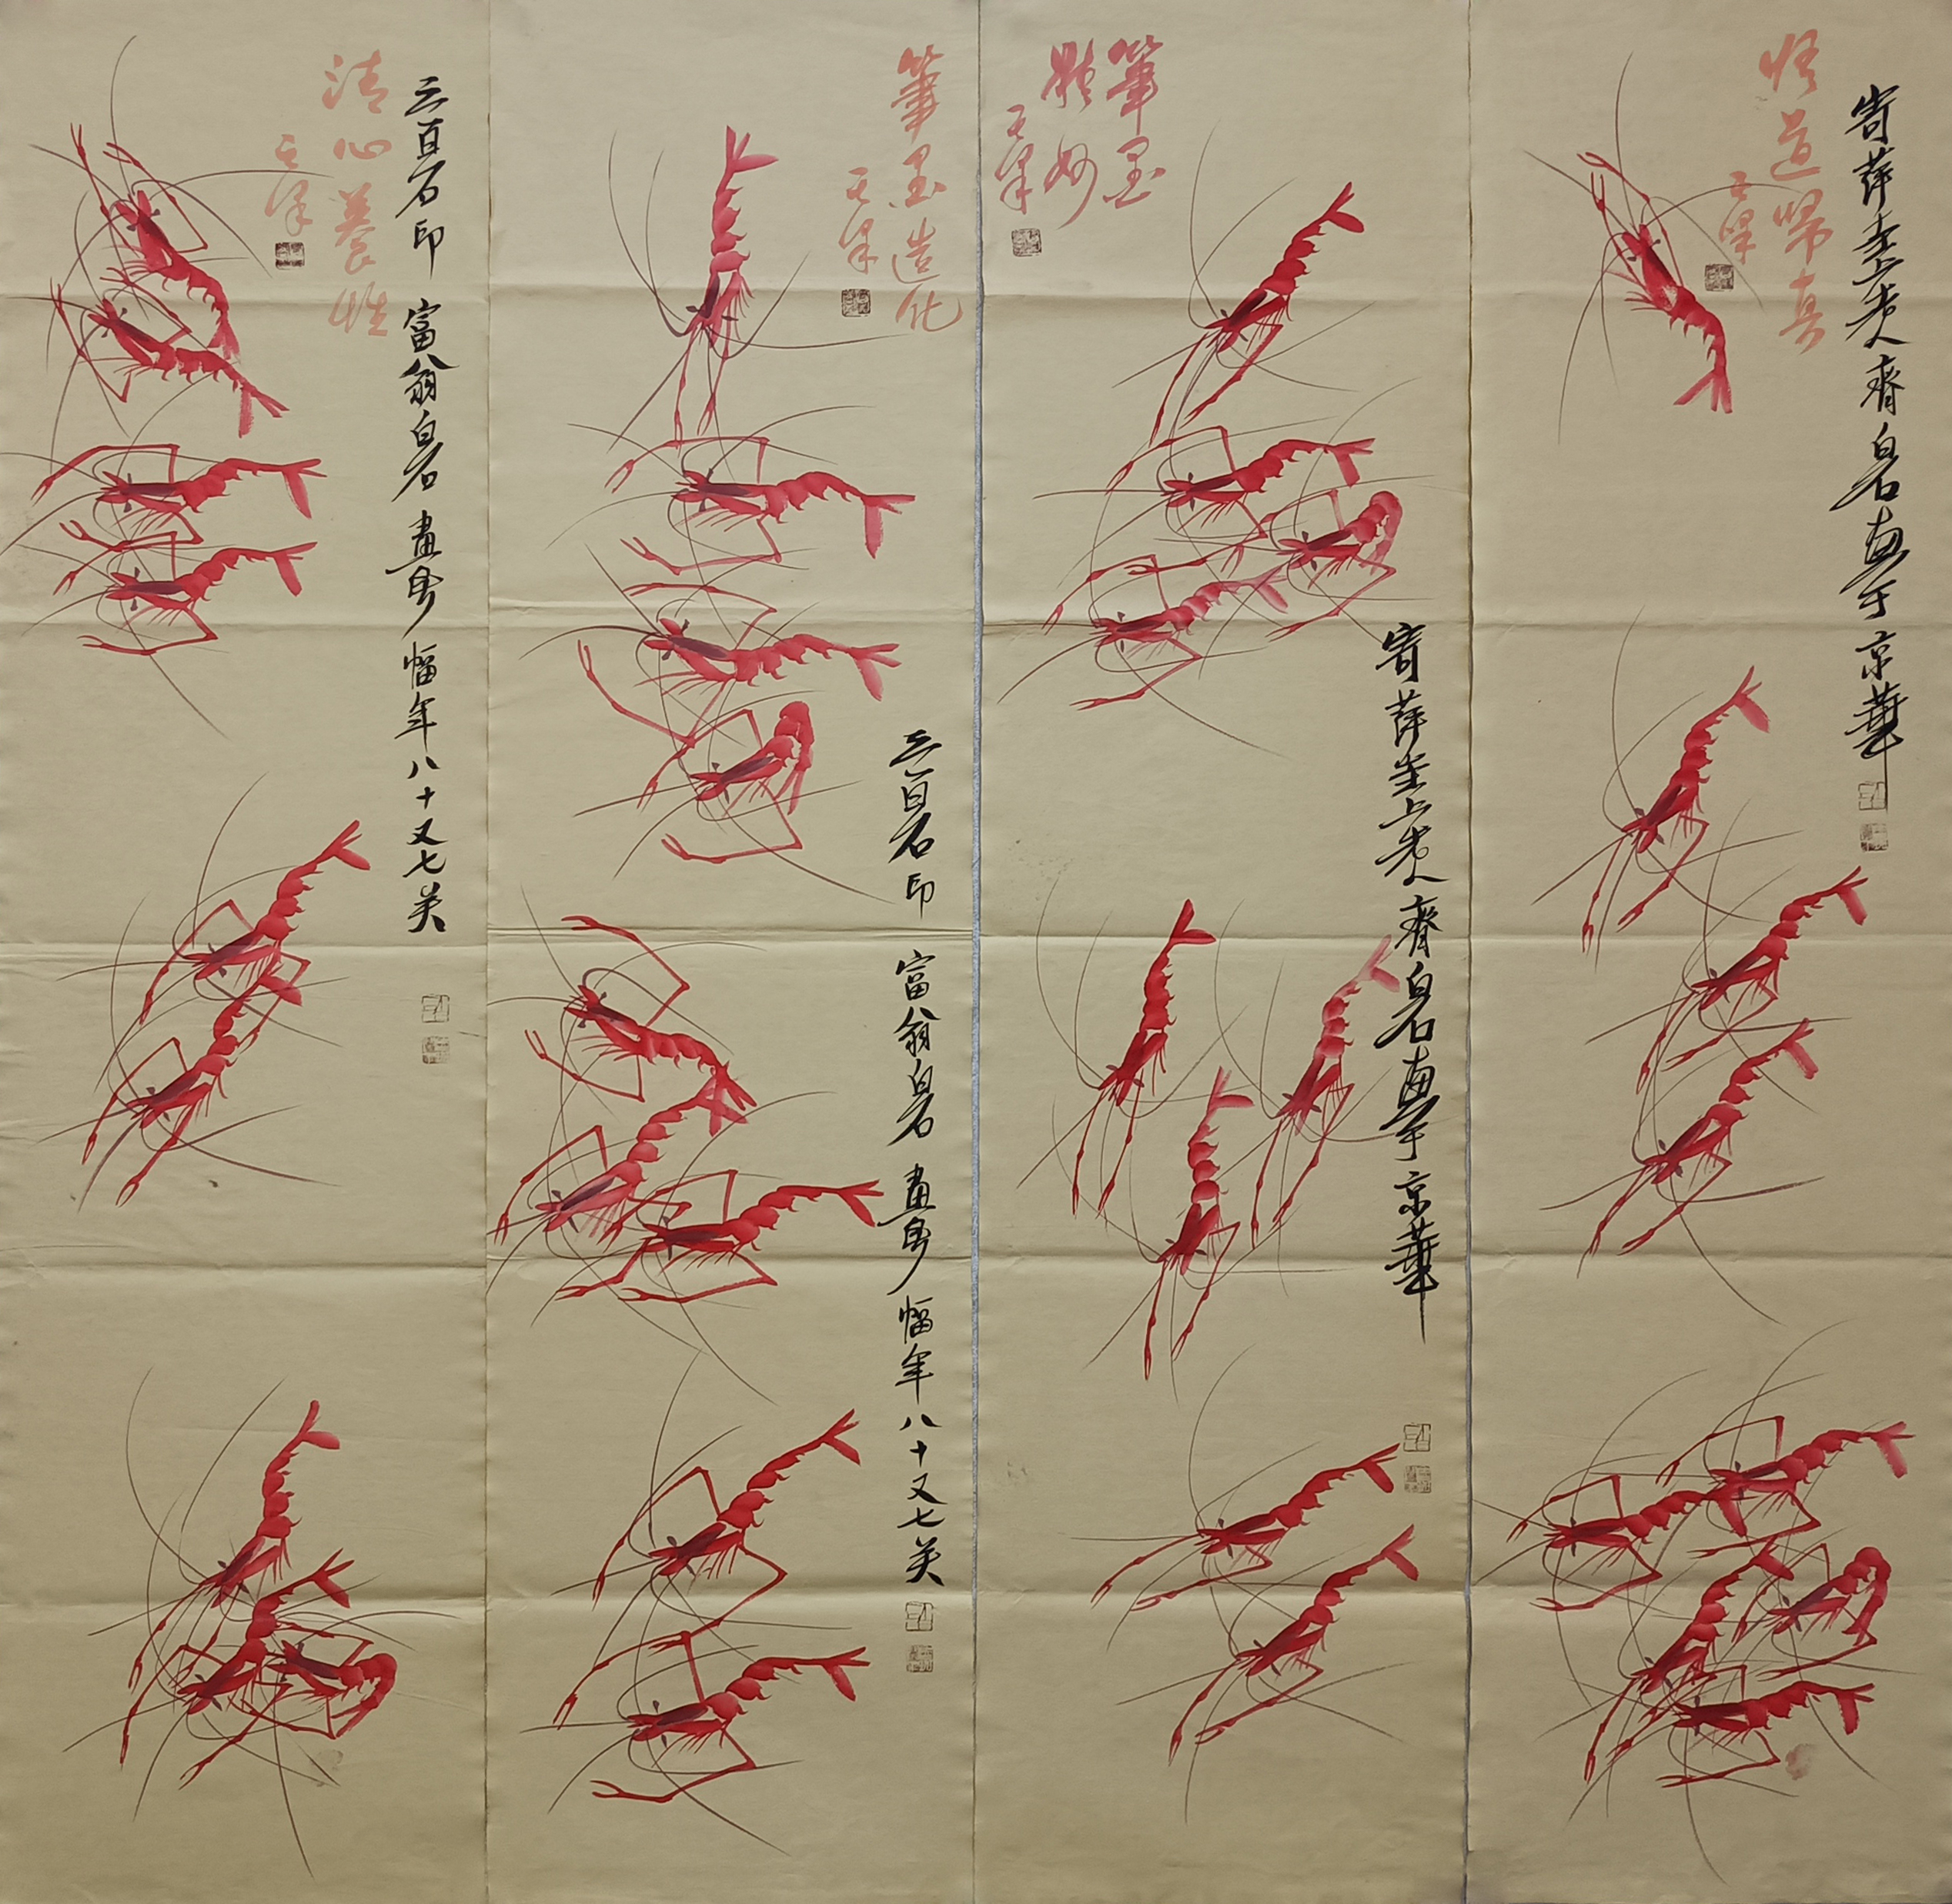 寄萍堂上老人齊白石畫于京華
悟道歸真
筆墨
妙
寄萍堂上老人齊白石畫于京華
筆墨造化
三百石印 富翁白石 畫 幅年八十又七矣
三百石印 富翁白石 畫 幅年八十又七矣
清心養性